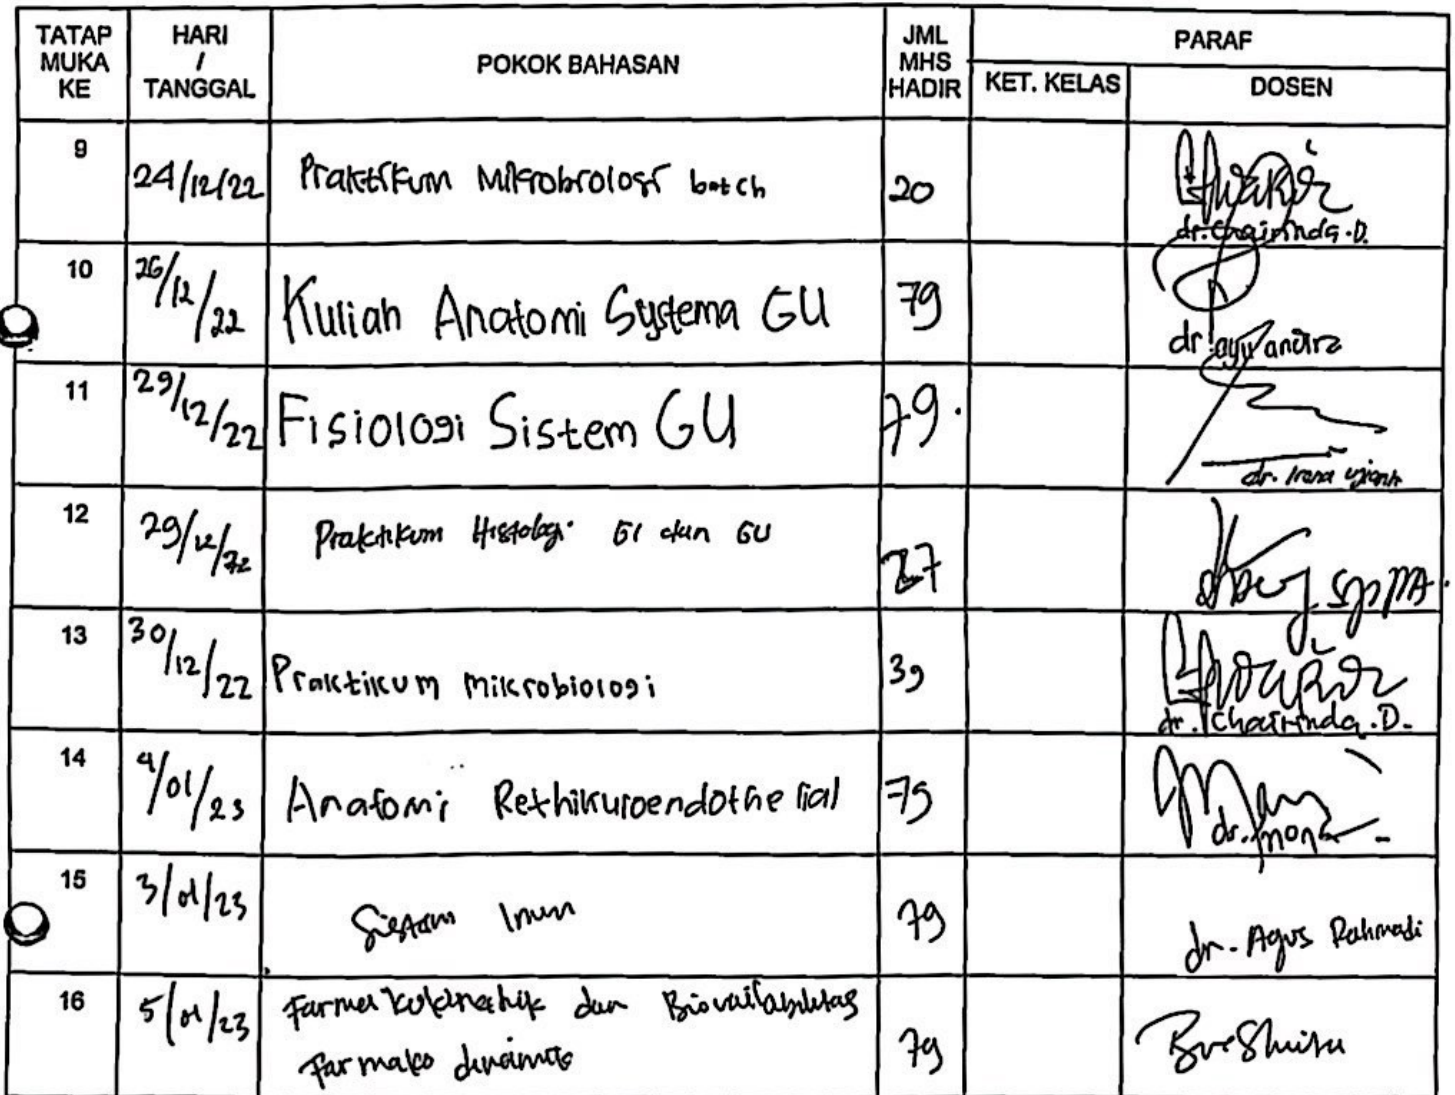 TATAP MUKA KE HARI / TANGGAL POKOK BAHASAN JML MHS HADIR PARAF
KET. KELAS DOSEN
9 24/12/22 Praktikum Mikrobiologi batch 20
dr. Chairinda .D.
10 26/12/22 Kuliah Anatomi Systema GU 79
dr ayu andira
11 29/12/22 Fisiologi Sistem GU 79.
dr. Irena
12 29/12/22 Praktikum Histologi GI dan GU 27 SpPA
13 30/12/22 Praktikum mikrobiologi 39
dr. Chairinda .D.
14 4/01/23 Anatomi Rethikuroendothelial 79
dr.
15 3/01/23 Sistem Imun 79 dr. Agus Rahmadi
16 5/01/23 dan Biovailabilitas
Farmako 79